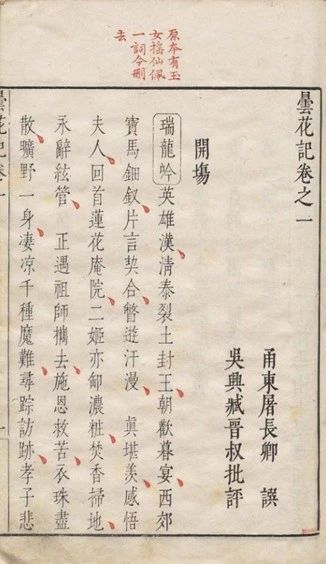 原本有玉
女搖仙佩
一詞今刪
去
曇花記卷之一
甬東屠長卿 譔
吳興臧晉叔批評
開塲
瑞龍吟 英雄漢清泰裂土封王朝歡暮宴西郊
寶馬鈿釵片言契合瞥遊汗漫 眞堪羨感悟
夫人回首蓮花庵院二姬亦卸濃粧焚香掃地
永辭絃管 正遇祖師攜去施恩救苦衣珠盡
散曠野一身淒凉千種魔難尋踪訪跡孝子悲
曇花記卷一
一